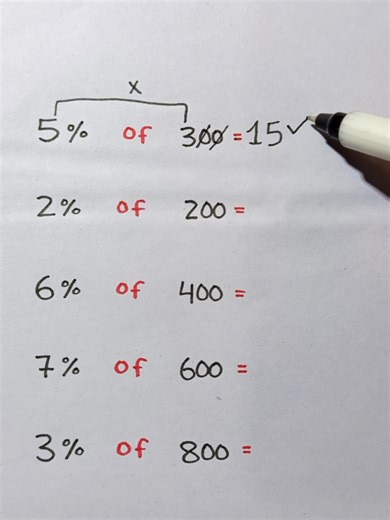 x
5% of 300 = 15 ✓
2% of 200 =
6% of 400 =
7% of 600 =
3% of 800 =